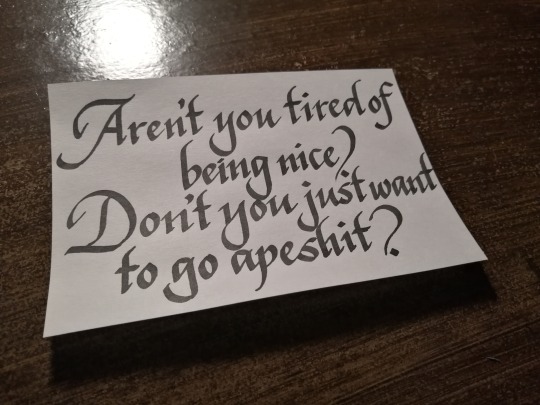 Aren't you tired of
being nice?
Don't you just want
to go apeshit?